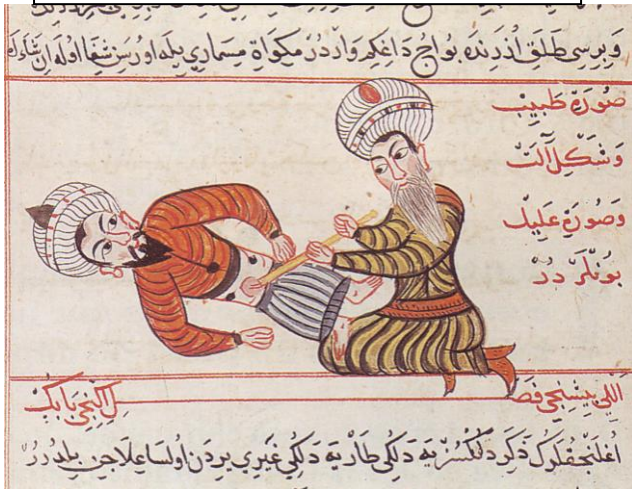 وَبرسى طَلَق اُزرنده بواوج داغِكم واردُر مكواة مسمارى بله اورسز شفا اوله ان شاء الله
صُورَةِ طَبِيب
وَشَكْلِ آلَتْ
وَصُورَةِ عَلِيل
بُونْلَرْ دُرْ
اللى بيشنجى فصل اكنجى بابك
اُغلنجقلرك ذكرد دلكسزيه دلكى طاريه دلكى غيرى يردن اولسا علاجن بلدورر